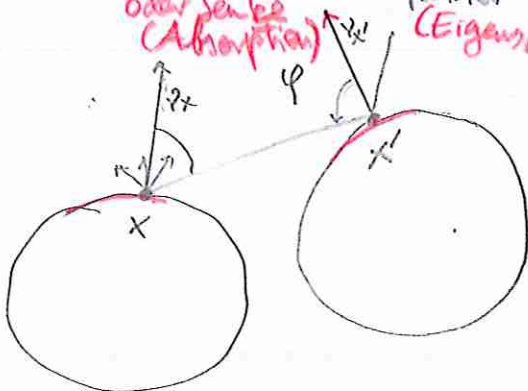 oder Senke
(Absorption)
(Eigens
φ
νx
νx'
x
x'